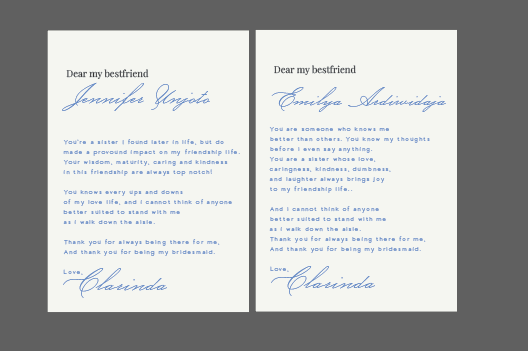 Dear my bestfriend
Jennifer Unjoto
You're a sister I found later in life, but do
made a provound impact on my friendship life.
Your wisdom, maturity, caring and kindness
in this friendship are always top notch!
You knows every ups and downs
of my love life, and I cannot think of anyone
better suited to stand with me
as I walk down the aisle.
Thank you for always being there for me,
And thank you for being my bridesmaid.
Love,
Clarinda
Dear my bestfriend
Emilya Ardiwidaja
You are someone who knows me
better than others. You know my thoughts
before I even say anything.
You are a sister whose love,
caringness, kindness, dumbness,
and laughter always brings joy
to my friendship life..
And I cannot think of anyone
better suited to stand with me
as I walk down the aisle.
Thank you for always being there for me,
And thank you for being my bridesmaid.
Love,
Clarinda